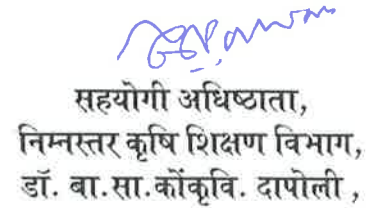 सहयोगी अधिष्ठाता,
निम्नस्तर कृषि शिक्षण विभाग,
डॉ. बा.सा.कोंकृवि. दापोली ,